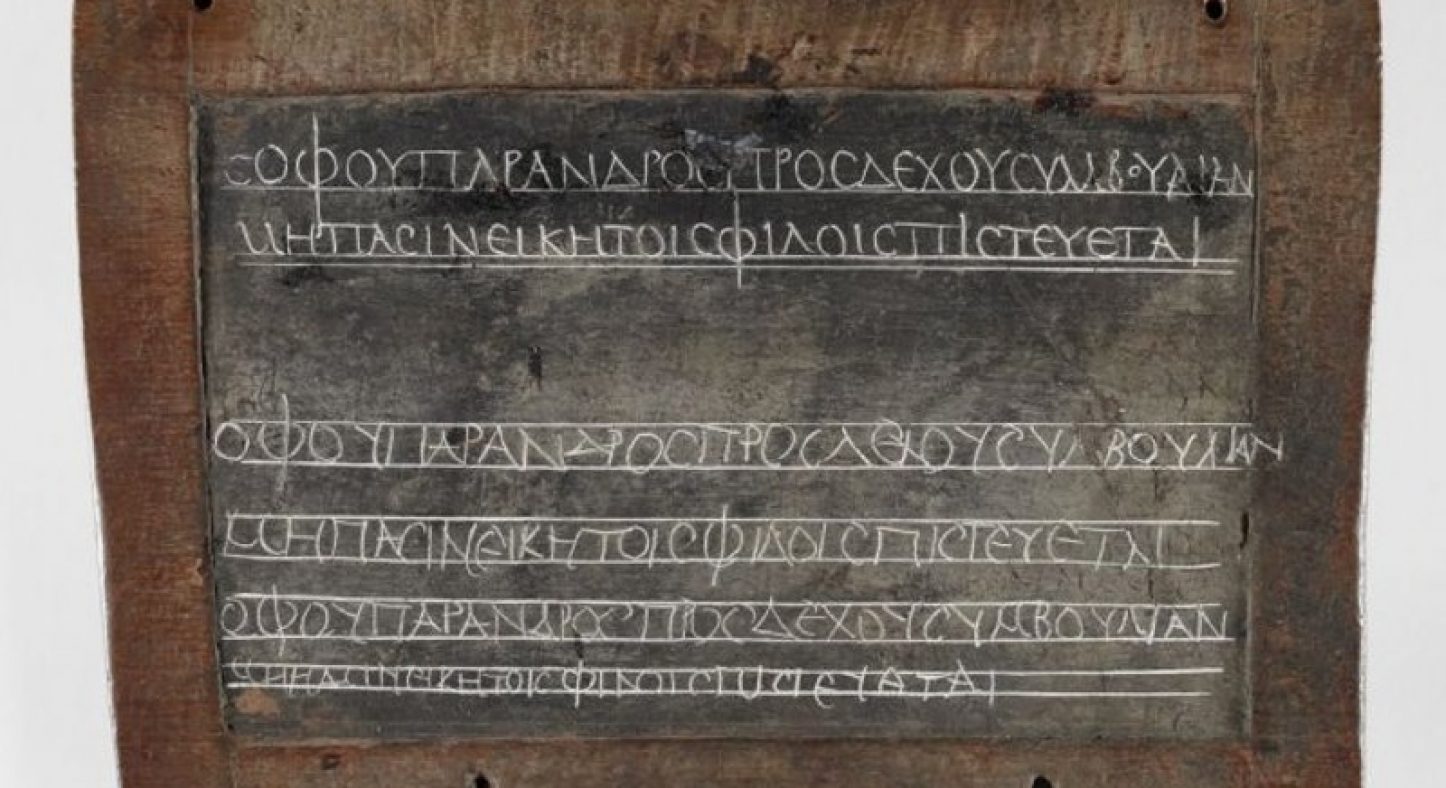 СΟΦΟΥΠΑΡΑΝΔΡΟϹΠΡΟϹΔΕΧΟΥϹΥΜΒΟΥΛΙΑΝ
ΜΗΠΑϹΙΝΕΙΚΗΤΟΙϹΦΙΛΟΙϹΠΙϹΤΕΥΕΤΑΙ
ΟΦΟΥΠΑΡΑΝΔΡΟϹΠΡΟϹΔΕΧΟΥϹΥΜΒΟΥΛΙΑΝ
ΜΗΠΑϹΙΝΕΙΚΗΤΟΙϹΦΙΛΟΙϹΠΙϹΤΕΥΕΤΑΙ
ΟΦΟΥΠΑΡΑΝΔΡΟϹΠΡΟϹΔΕΧΟΥϹΥΜΒΟΥΛΙΑΝ
ΜΗΠΑϹΙΝΕΙΚΗΤΟΙϹΦΙΛΟΙϹΠΙϹΤΕΥΕΤΑΙ